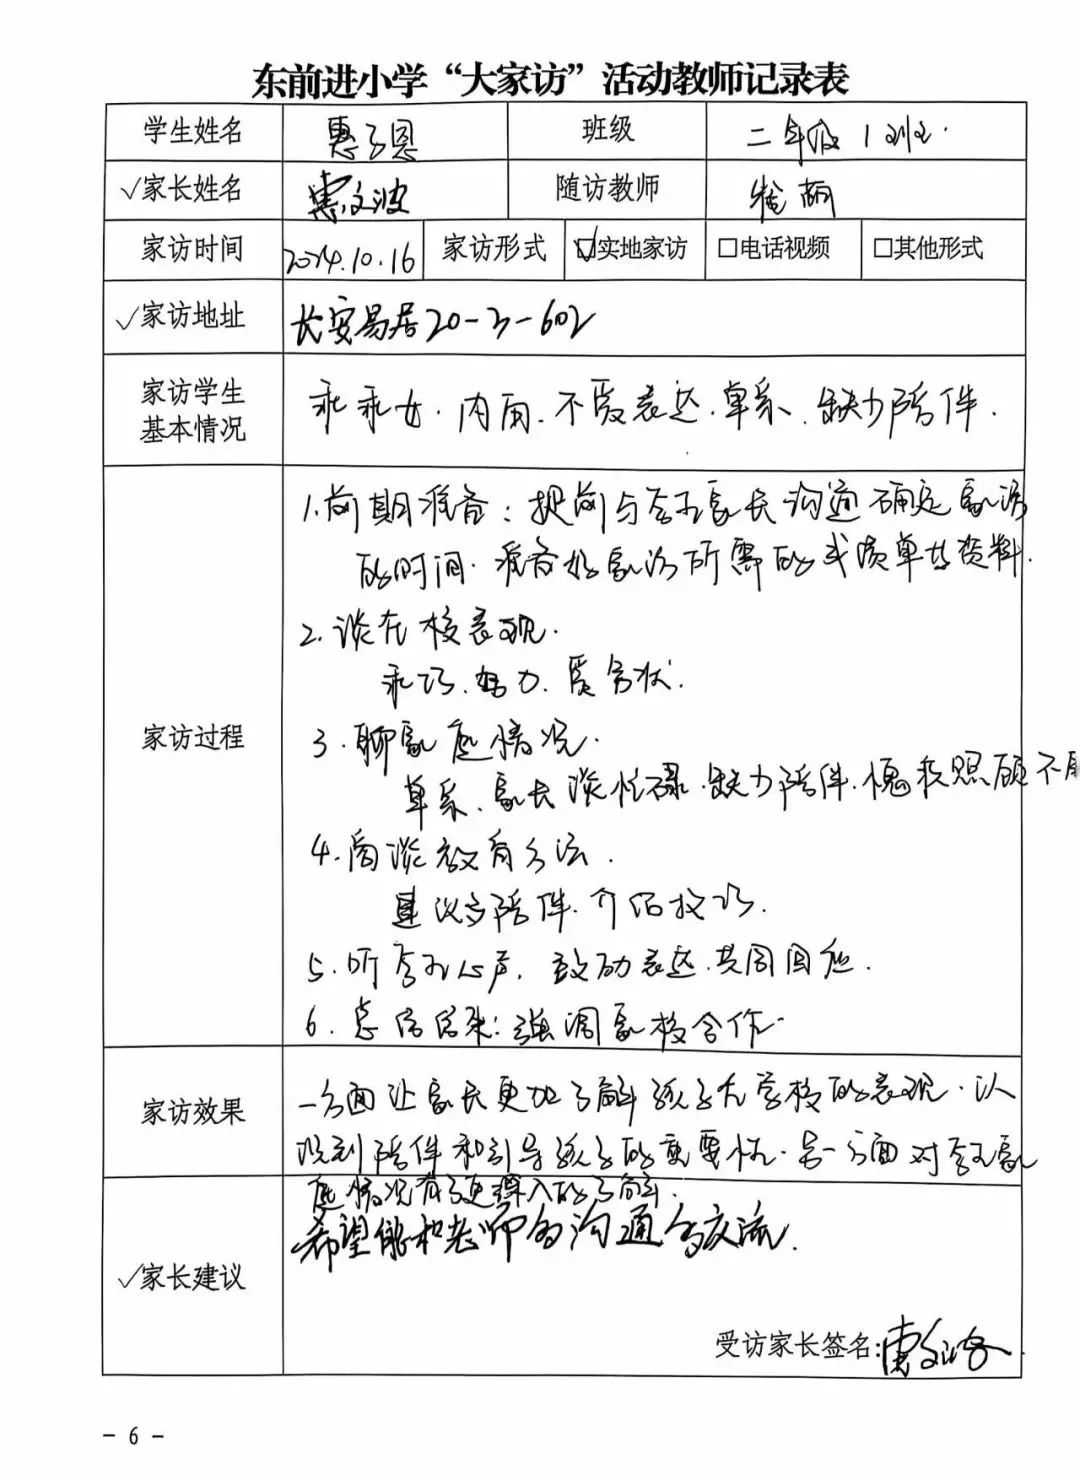 东前进小学“大家访”活动教师记录表
学生姓名 惠子恩 班级 二年级1班.
✓家长姓名 惠文波 随访教师
家访时间 2024.10.16 家访形式 ☑实地家访 □电话视频 □其他形式
✓家访地址 长安易居20-3-602
家访学生
基本情况 乖乖女.内向.不爱表达.单亲、缺少陪伴.
家访过程
1.前期准备:提前与学生家长沟通确定家访
的时间.准备好家访所需的成绩单等资料.
2.谈在校表现.
乖巧.努力.爱
3.聊家庭情况.
单亲、家长谈忙碌.缺少陪伴.愧疚照顾不周
4.商谈教育方法.
建议多陪伴.介绍技巧.
5.听学生心声,鼓励表达.共同
6.总结结果:强调家校合作.
家访效果
一方面让家长更加了解孩子在学校的表现.认
识到陪伴和引导孩子的重要性.另一方面对学生家
庭情况有了更深入的了解.
✓家长建议 希望能和老师多沟通多交流.
受访家长签名:惠文波
- 6 -